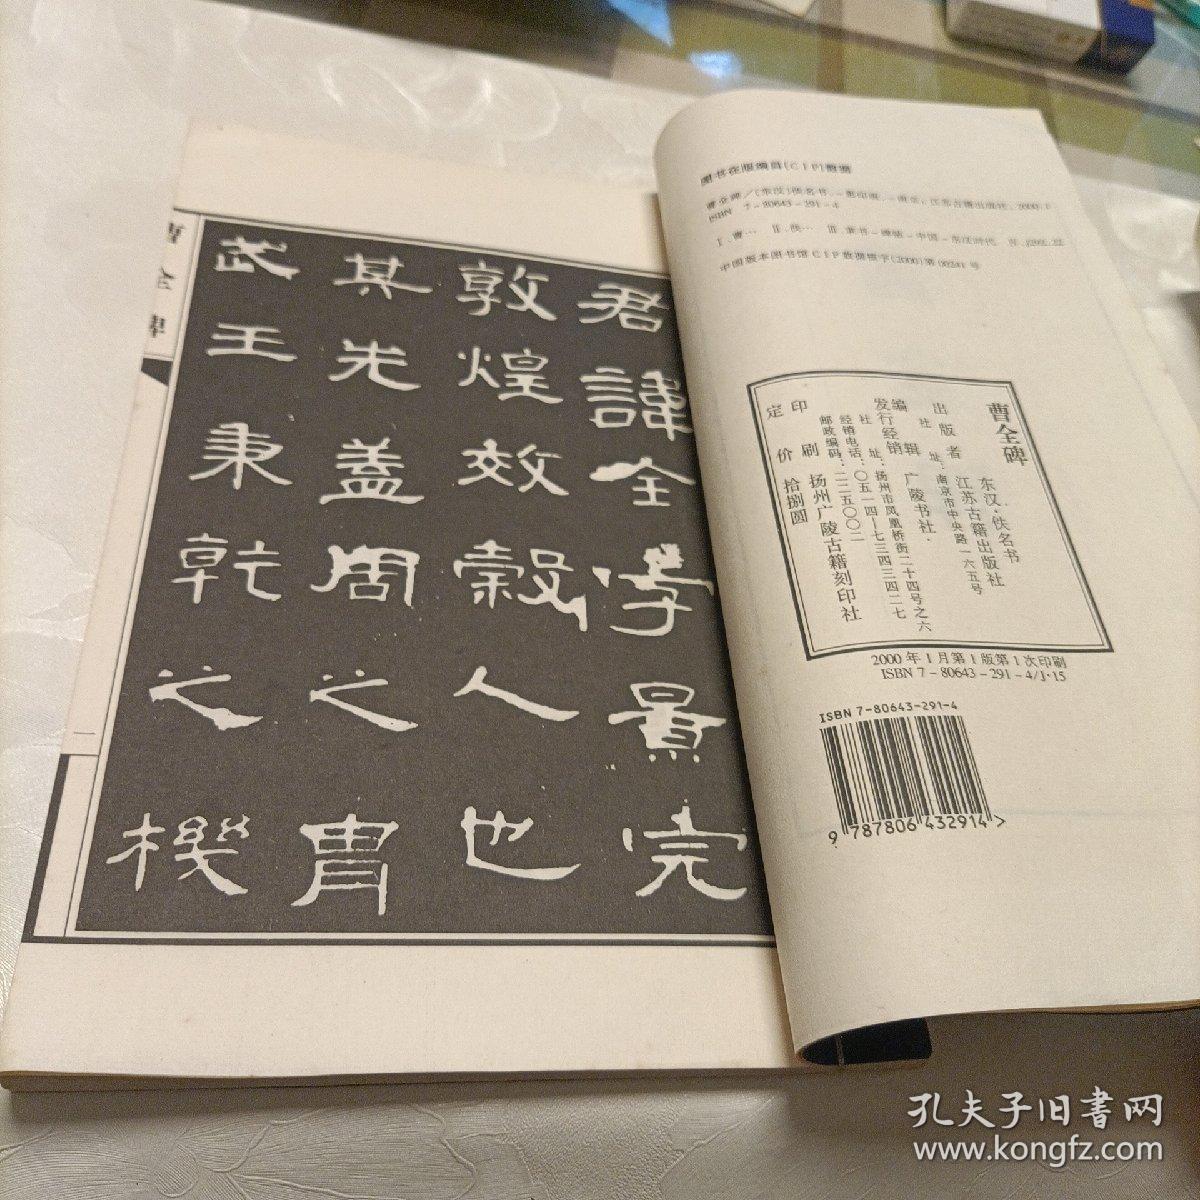 图书在版编目(CIP)数据
曹全碑/(东汉)佚名书.-影印版.-南京:江苏古籍出版社,2000.1
ISBN 7-80643-291-4
Ⅰ.曹… Ⅱ.佚… Ⅲ.隶书-碑帖-中国-东汉时代 Ⅳ.J292.22
中国版本图书馆CIP数据核字(2000)第00241号
曹全碑
东汉·佚名书
出版者 江苏古籍出版社
社址:南京市中央路一六五号
编辑 广陵书社
发行经销
社址:扬州市凤凰桥街二十四号之六
经销电话:〇五一四—七三四三四二七
邮政编码:二二五〇〇二
印刷 扬州广陵古籍刻印社
定价 拾捌圆
2000年1月第1版第1次印刷
ISBN 7-80643-291-4/J·15
ISBN 7-80643-291-4
9 787806 432914 >
君諱全字景完
敦煌效穀人也
其先蓋周之胄
武王秉乾之機
曹全碑
一
孔夫子旧書网
www.kongfz.com